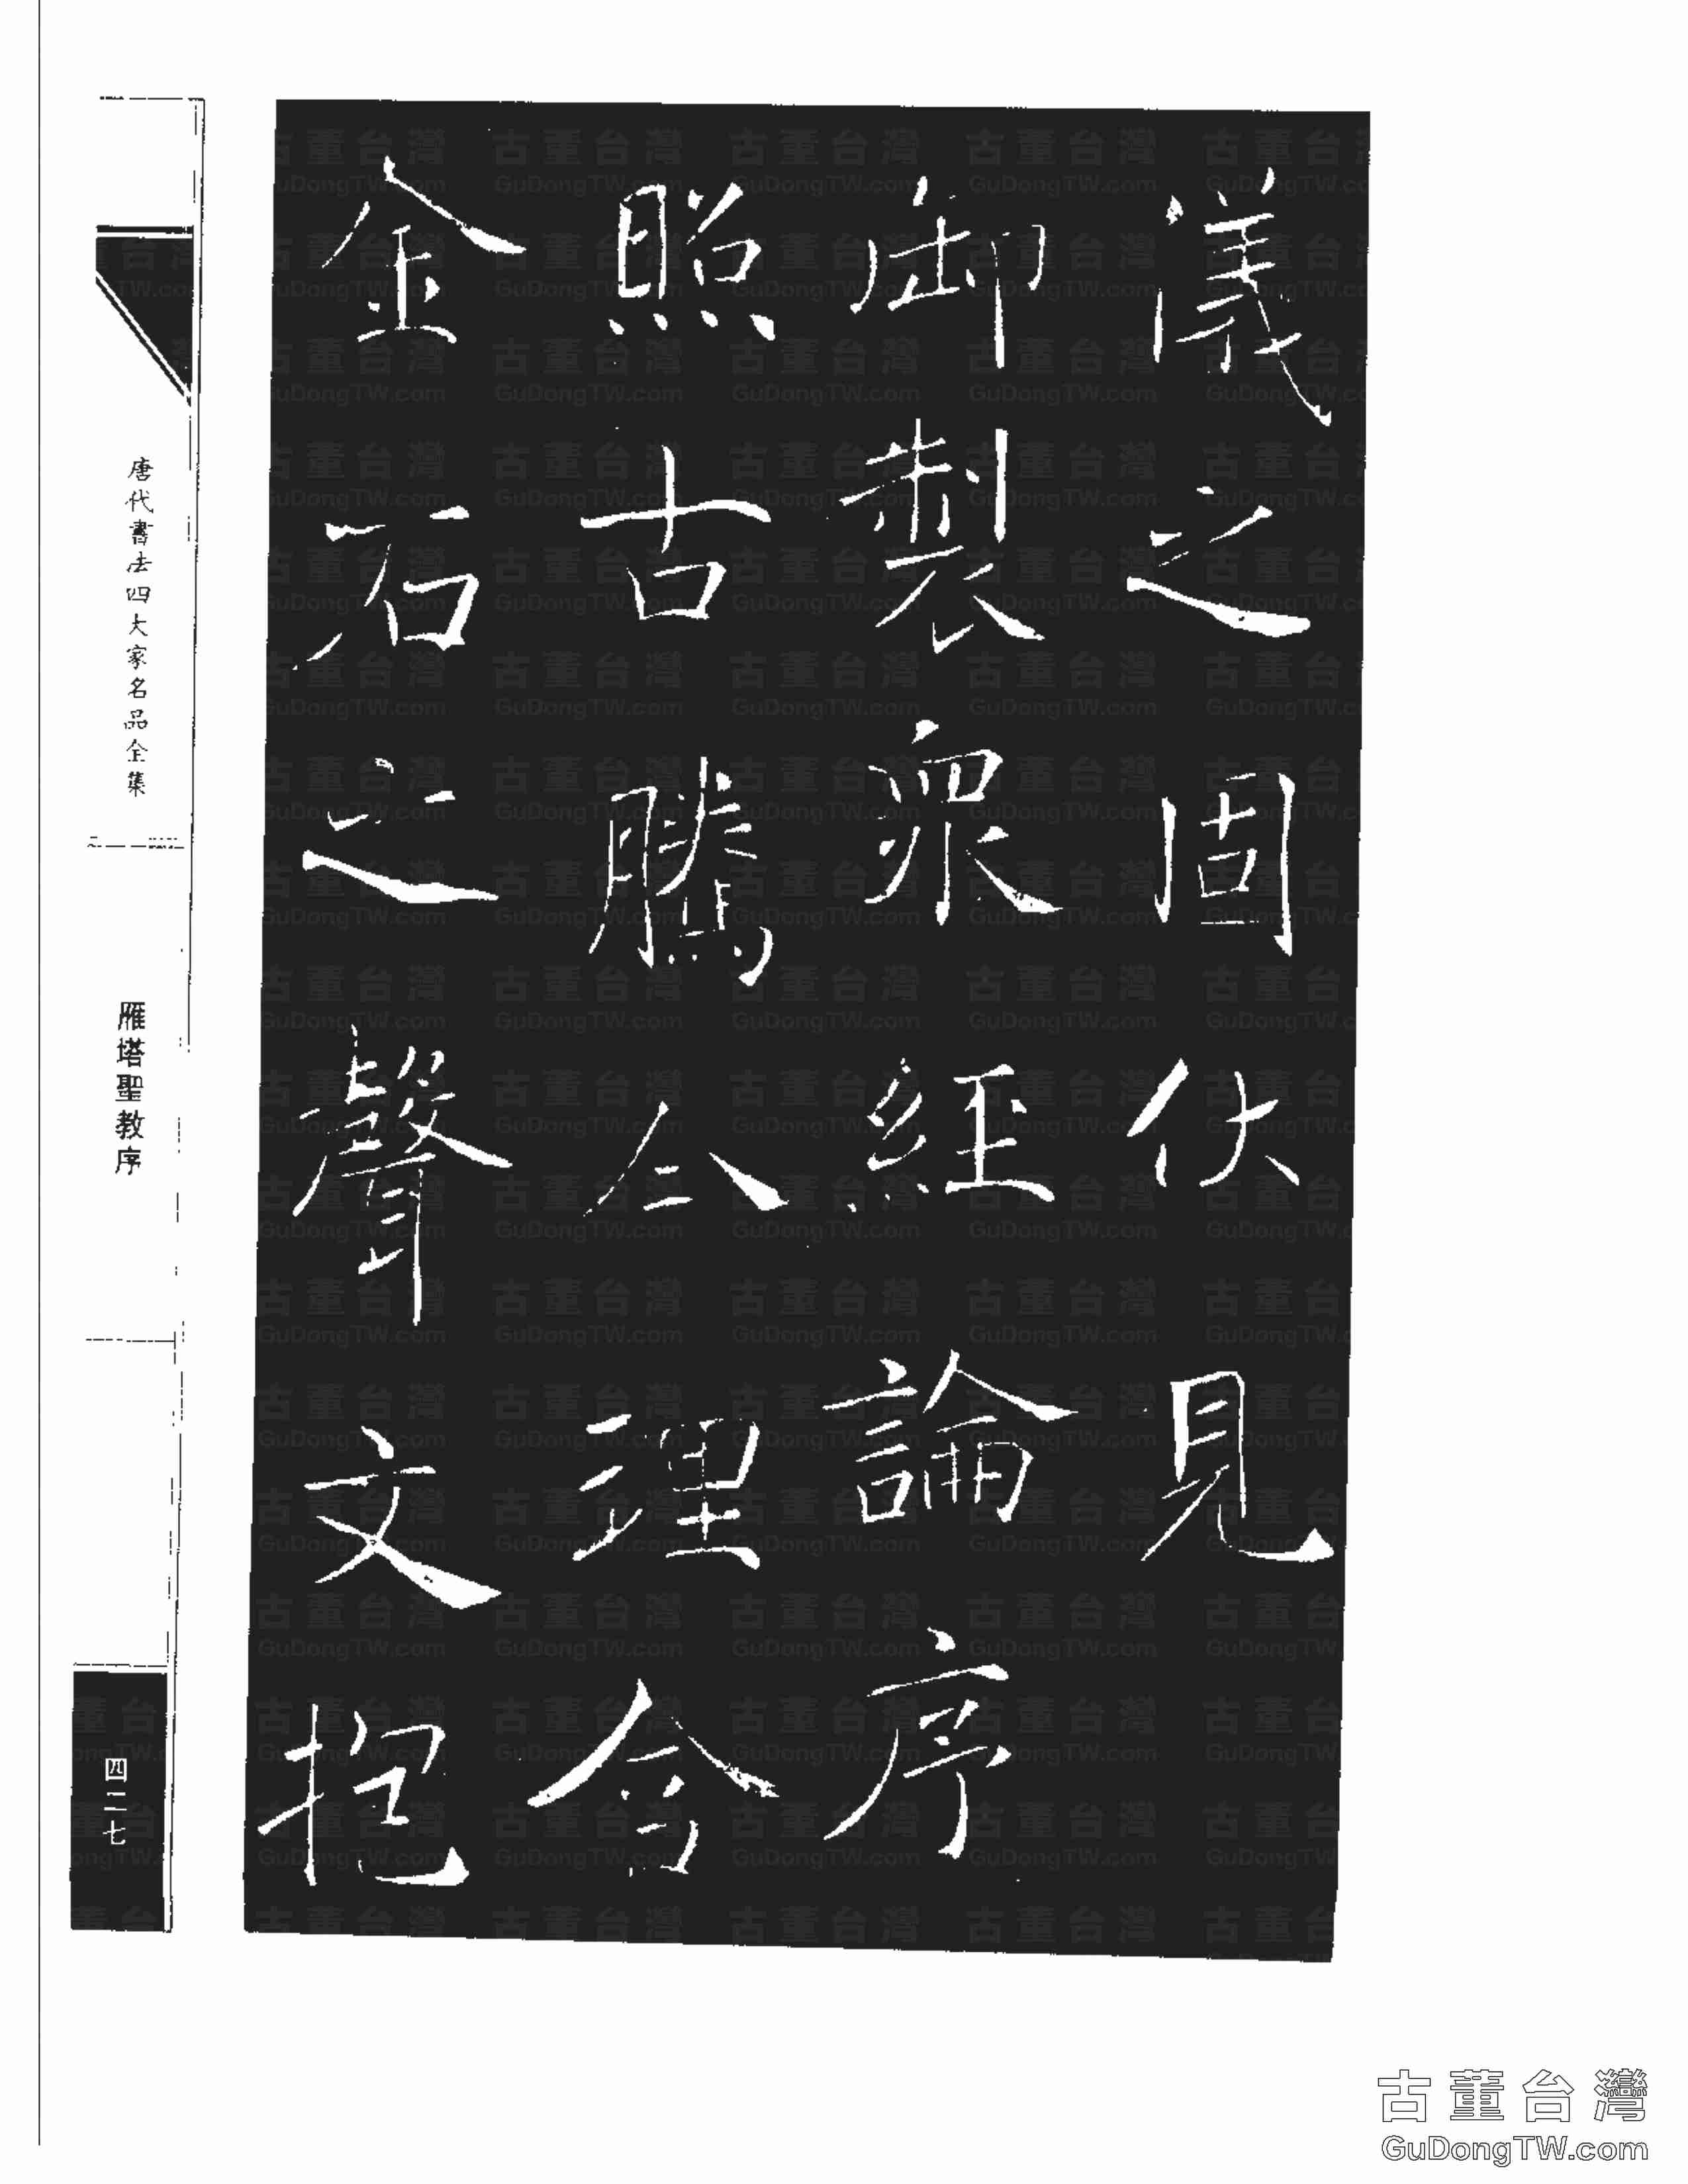 儀之固伏見
御製眾經論序
照古騰今理含
金石之聲文抱
唐代書法四大家名品全集
雁塔聖教序
四二七
古董台灣
GuDongTW.com